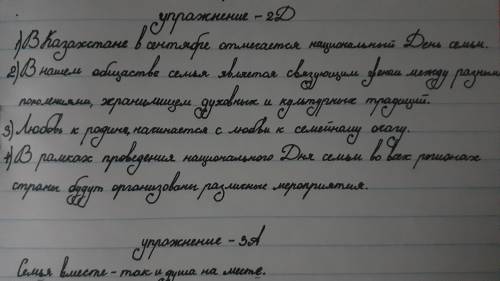 упражнение - 2Д
1) В Казахстане в сентябре отмечается национальный День семьи.
2) В нашем обществе семья является связующим звеном между разными
поколениями, хранилищем духовных и культурных традиций.
3) Любовь к родине, начинается с любви к семейному очагу.
4) В рамках проведения национального Дня семьи во всех регионах
страны будут организованы различные мероприятия.
упражнение - 3А
Семья вместе - так и душа на месте.